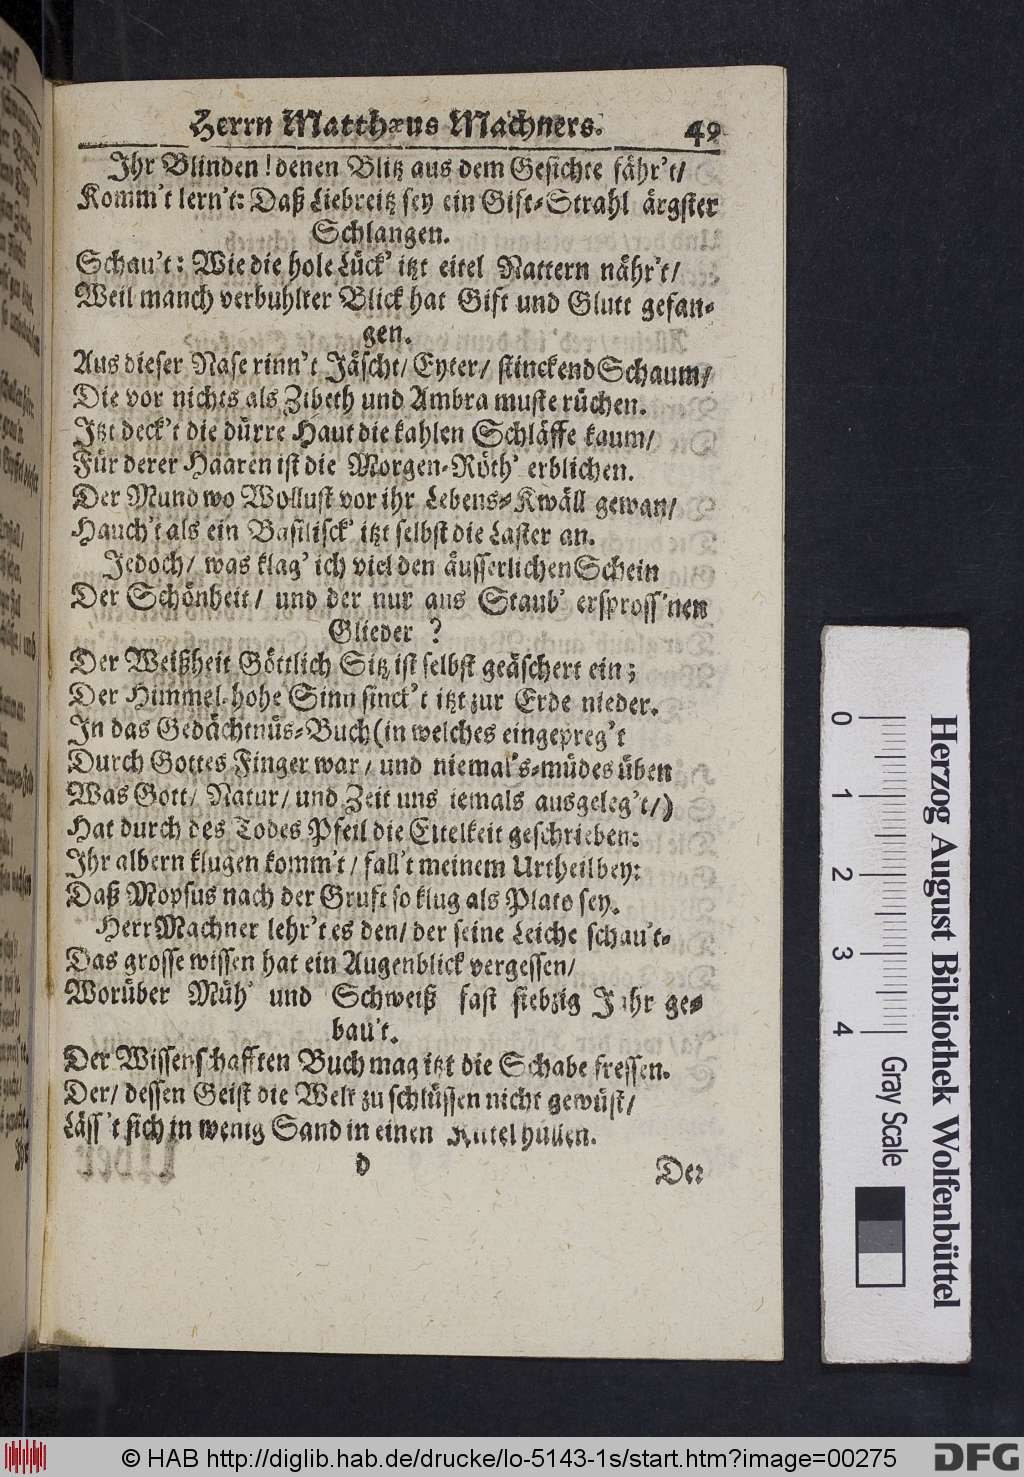 Herrn Matthæus Machners. 49
Ihr Blinden! denen Blitz aus dem Gesichte fähr't/
Komm't lern't: Daß Liebreitz sey ein Gift-Strahl ärgster
Schlangen.
Schau't: Wie die hole Lück' itzt eitel Nattern nähr't/
Weil manch verbuhlter Blick hat Gift und Glutt gefan-
gen.
Aus dieser Nase rinn't Jäscht/ Eyter/ stinckend Schaum/
Die vor nichts als Zibeth und Ambra muste rüchen.
Itzt deck't die dürre Haut die kahlen Schläffe kaum/
Für derer Haaren ist die Morgen-Röth' erblichen.
Der Mund wo Wollust vor ihr Lebens-Kwäll gewan/
Hauch't als ein Basilisck' itzt selbst die Laster an.
Jedoch/ was klag' ich viel den äusserlichen Schein
Der Schönheit/ und der nur aus Staub' erspross'nen
Glieder ?
Der Weißheit Göttlich Sitz ist selbst geäschert ein;
Der Himmel-hohe Sinn sinck't itzt zur Erde nieder.
In das Gedächtnüs-Buch (in welches eingepreg't
Durch Gottes Finger war/ und niemal's-müdes üben
Was Gott/ Natur/ und Zeit uns iemals ausgeleg't/)
Hat durch des Todes Pfeil die Eitelkeit geschrieben:
Ihr albern klugen komm't/ fall't meinem Urtheil bey:
Daß Mopsus nach der Gruft so klug als Plato sey.
Herr Machner lehr't es den/ der seine Leiche schau't-
Das grosse wissen hat ein Augenblick vergessen/
Worüber Müh' und Schweiß fast siebzig Jahr ge-
bau't.
Der Wissenschafften Buch mag itzt die Schabe fressen.
Der/ dessen Geist die Welt zu schlüssen nicht gewüst/
Läss't sich in wenig Sand in einen Kittel hüllen.
d Der
Herzog August Bibliothek Wolfenbüttel
0 1 2 3 4 Gray Scale
© HAB http://diglib.hab.de/drucke/lo-5143-1s/start.htm?image=00275 DFG